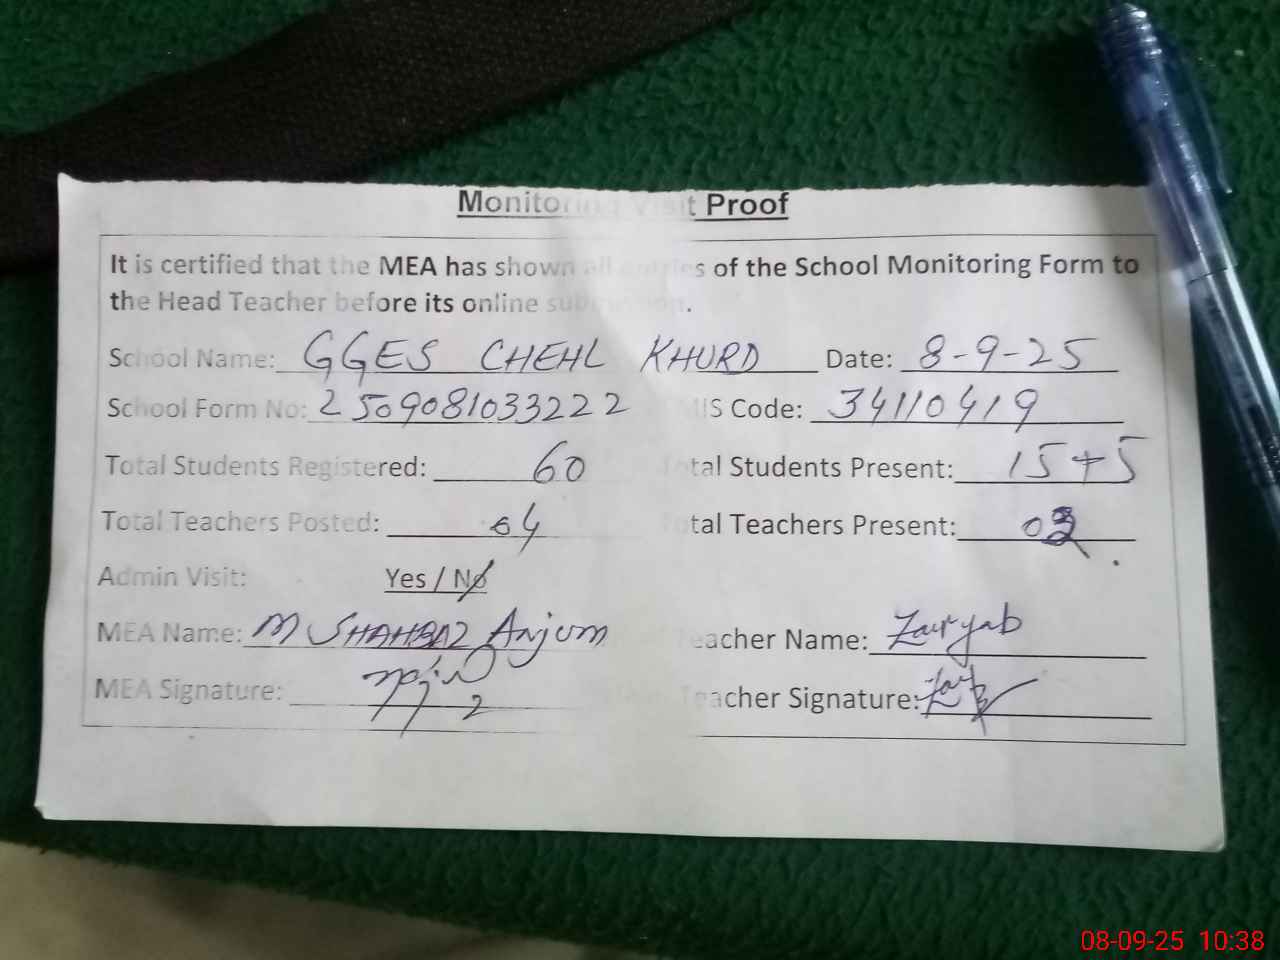 Monitoring Visit Proof
It is certified that the MEA has shown all entries of the School Monitoring Form to
the Head Teacher before its online submission.
School Name: GGES CHEHL KHURD Date: 8-9-25
School Form No: 2509081033222 MIS Code: 34110419
Total Students Registered: 60 Total Students Present: 15+5
Total Teachers Posted: 04 Total Teachers Present: 03
Admin Visit: Yes / No
MEA Name: M SHAHBAZ Anjum Teacher Name: Zaryab
MEA Signature: Teacher Signature:
08-09-25 10:38